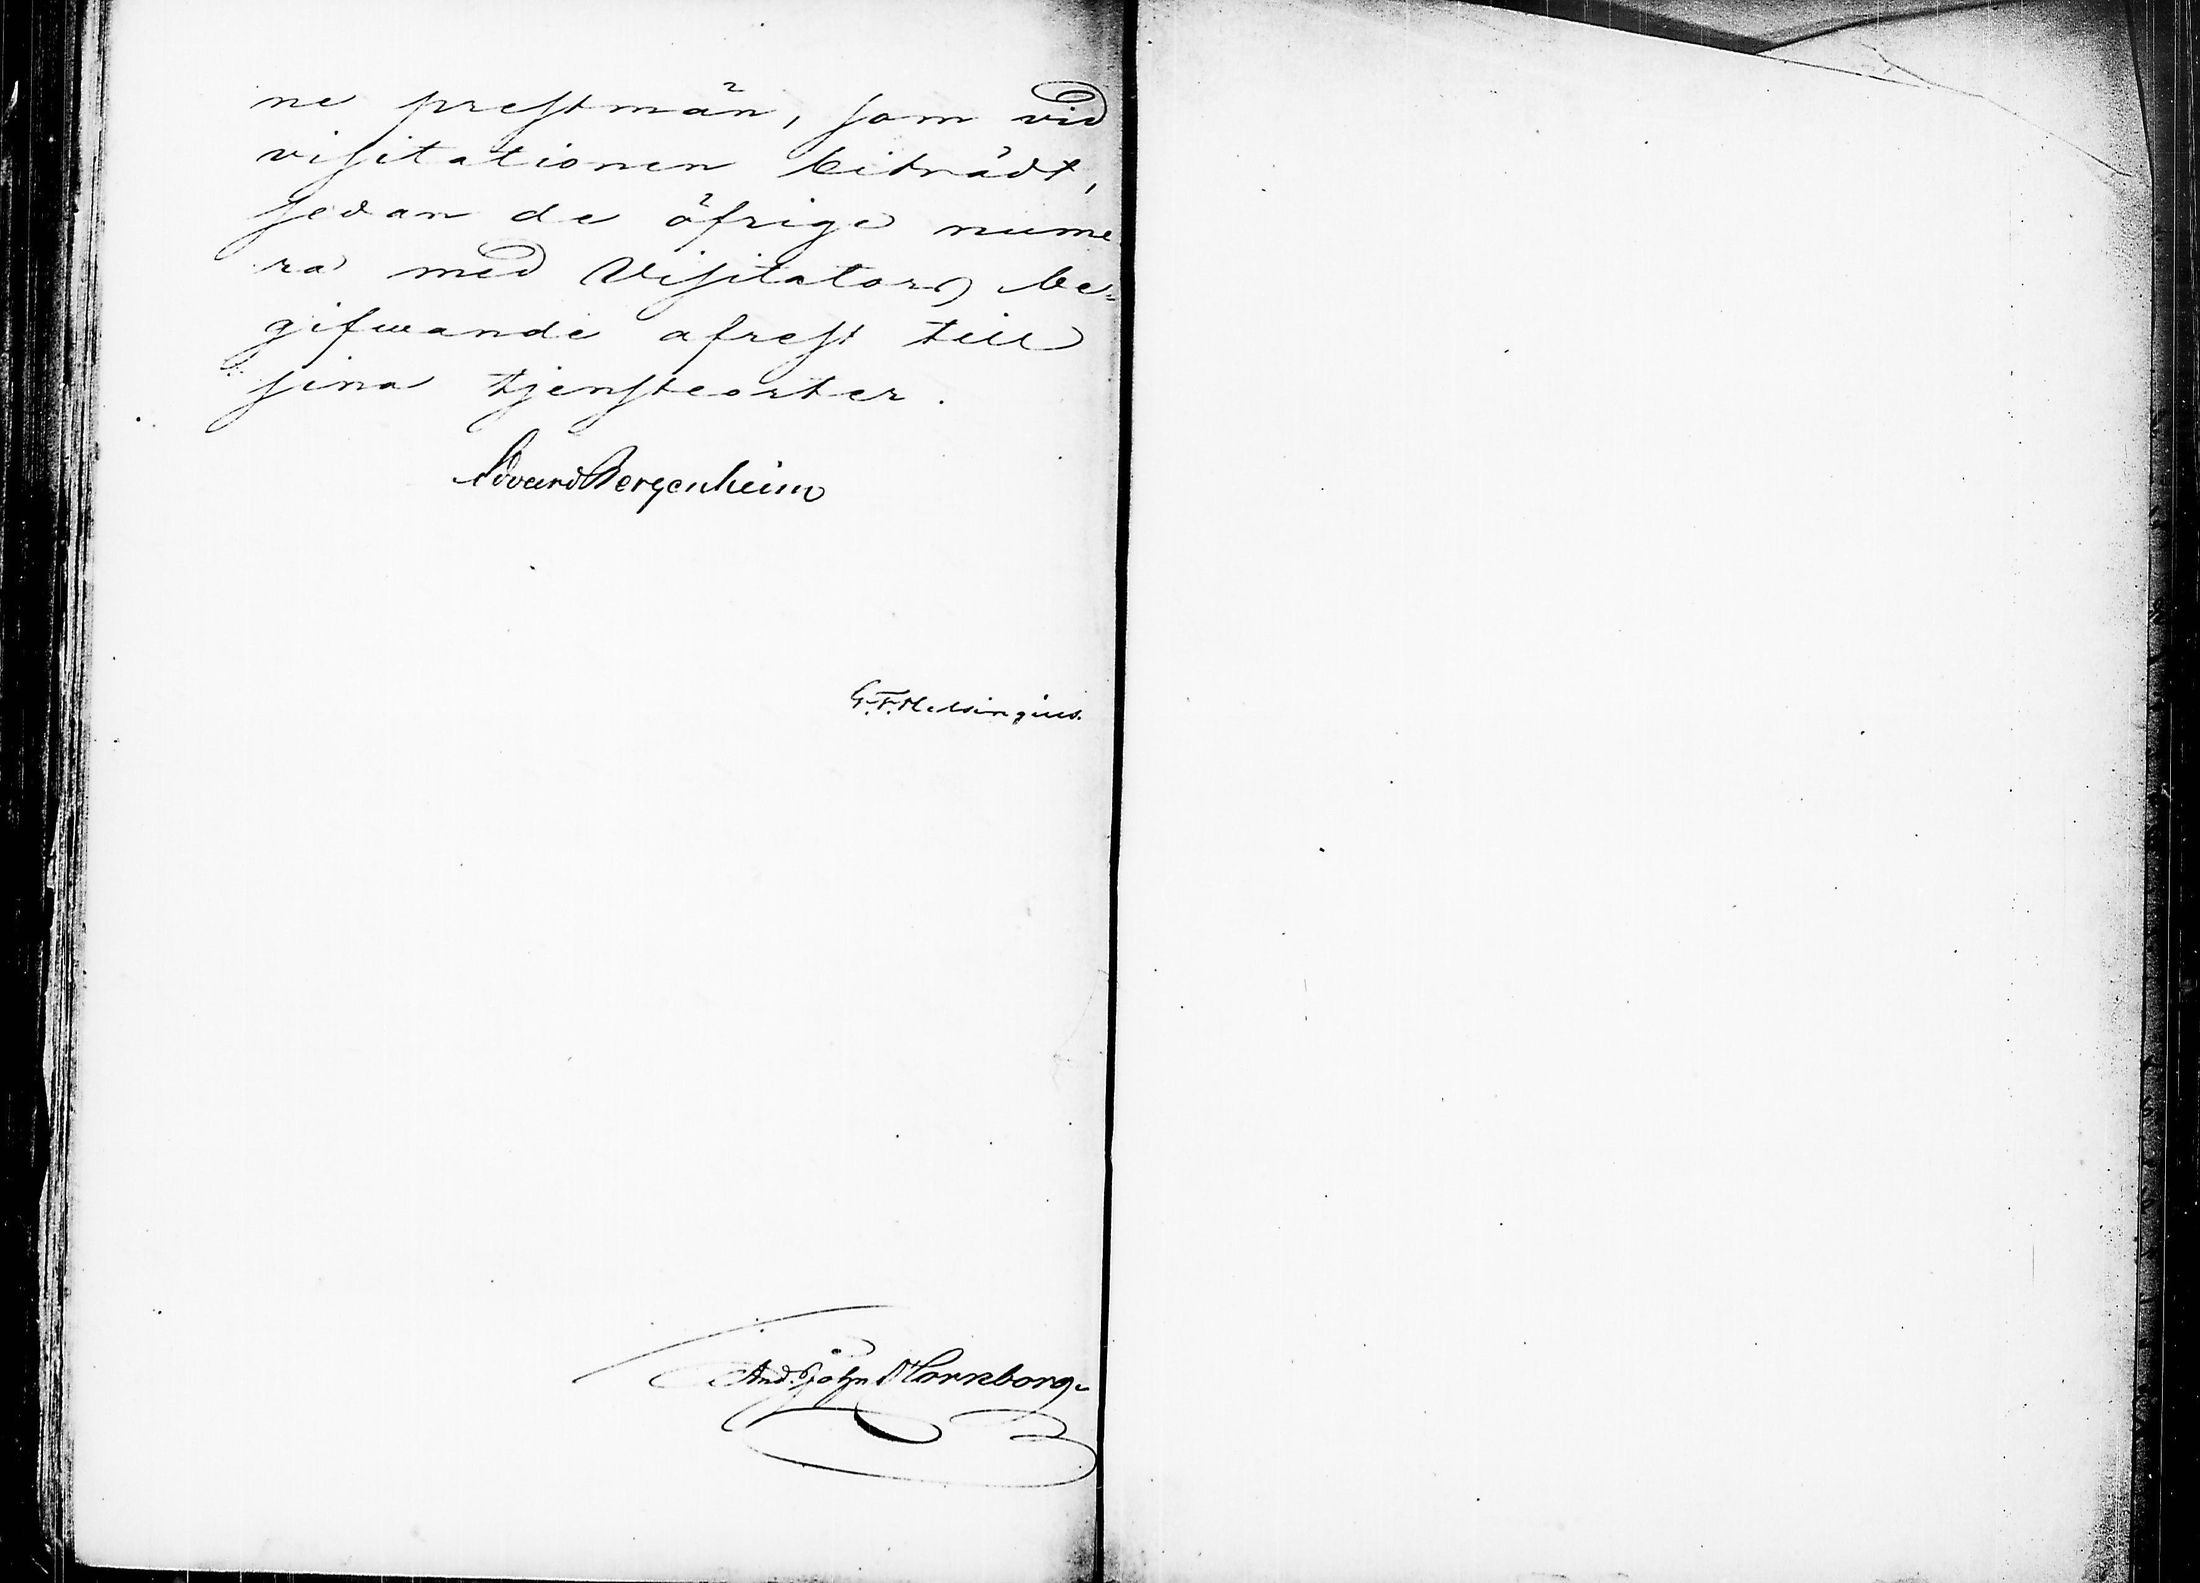 ne prestmän, som vid
visitationen biträdt,
sedan de öfrige nume
ra med Visitators be=
gifwande afrest till
sina tjensteorter.
Edvard Bergenheim
G. F. Helsingius.
And. John Hornborg